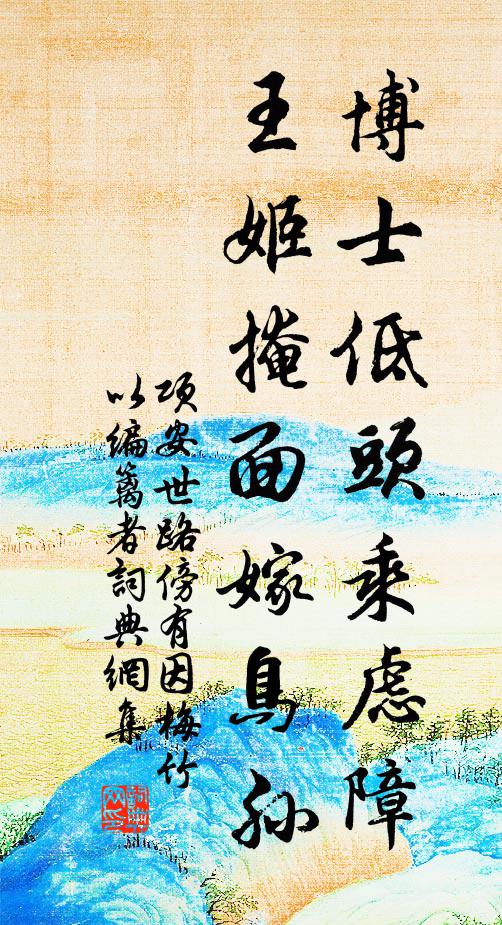 博士低頭乘虑障
王姬掩面嫁烏孙
項安世路傍有因梅竹
以編篱者詞典網集